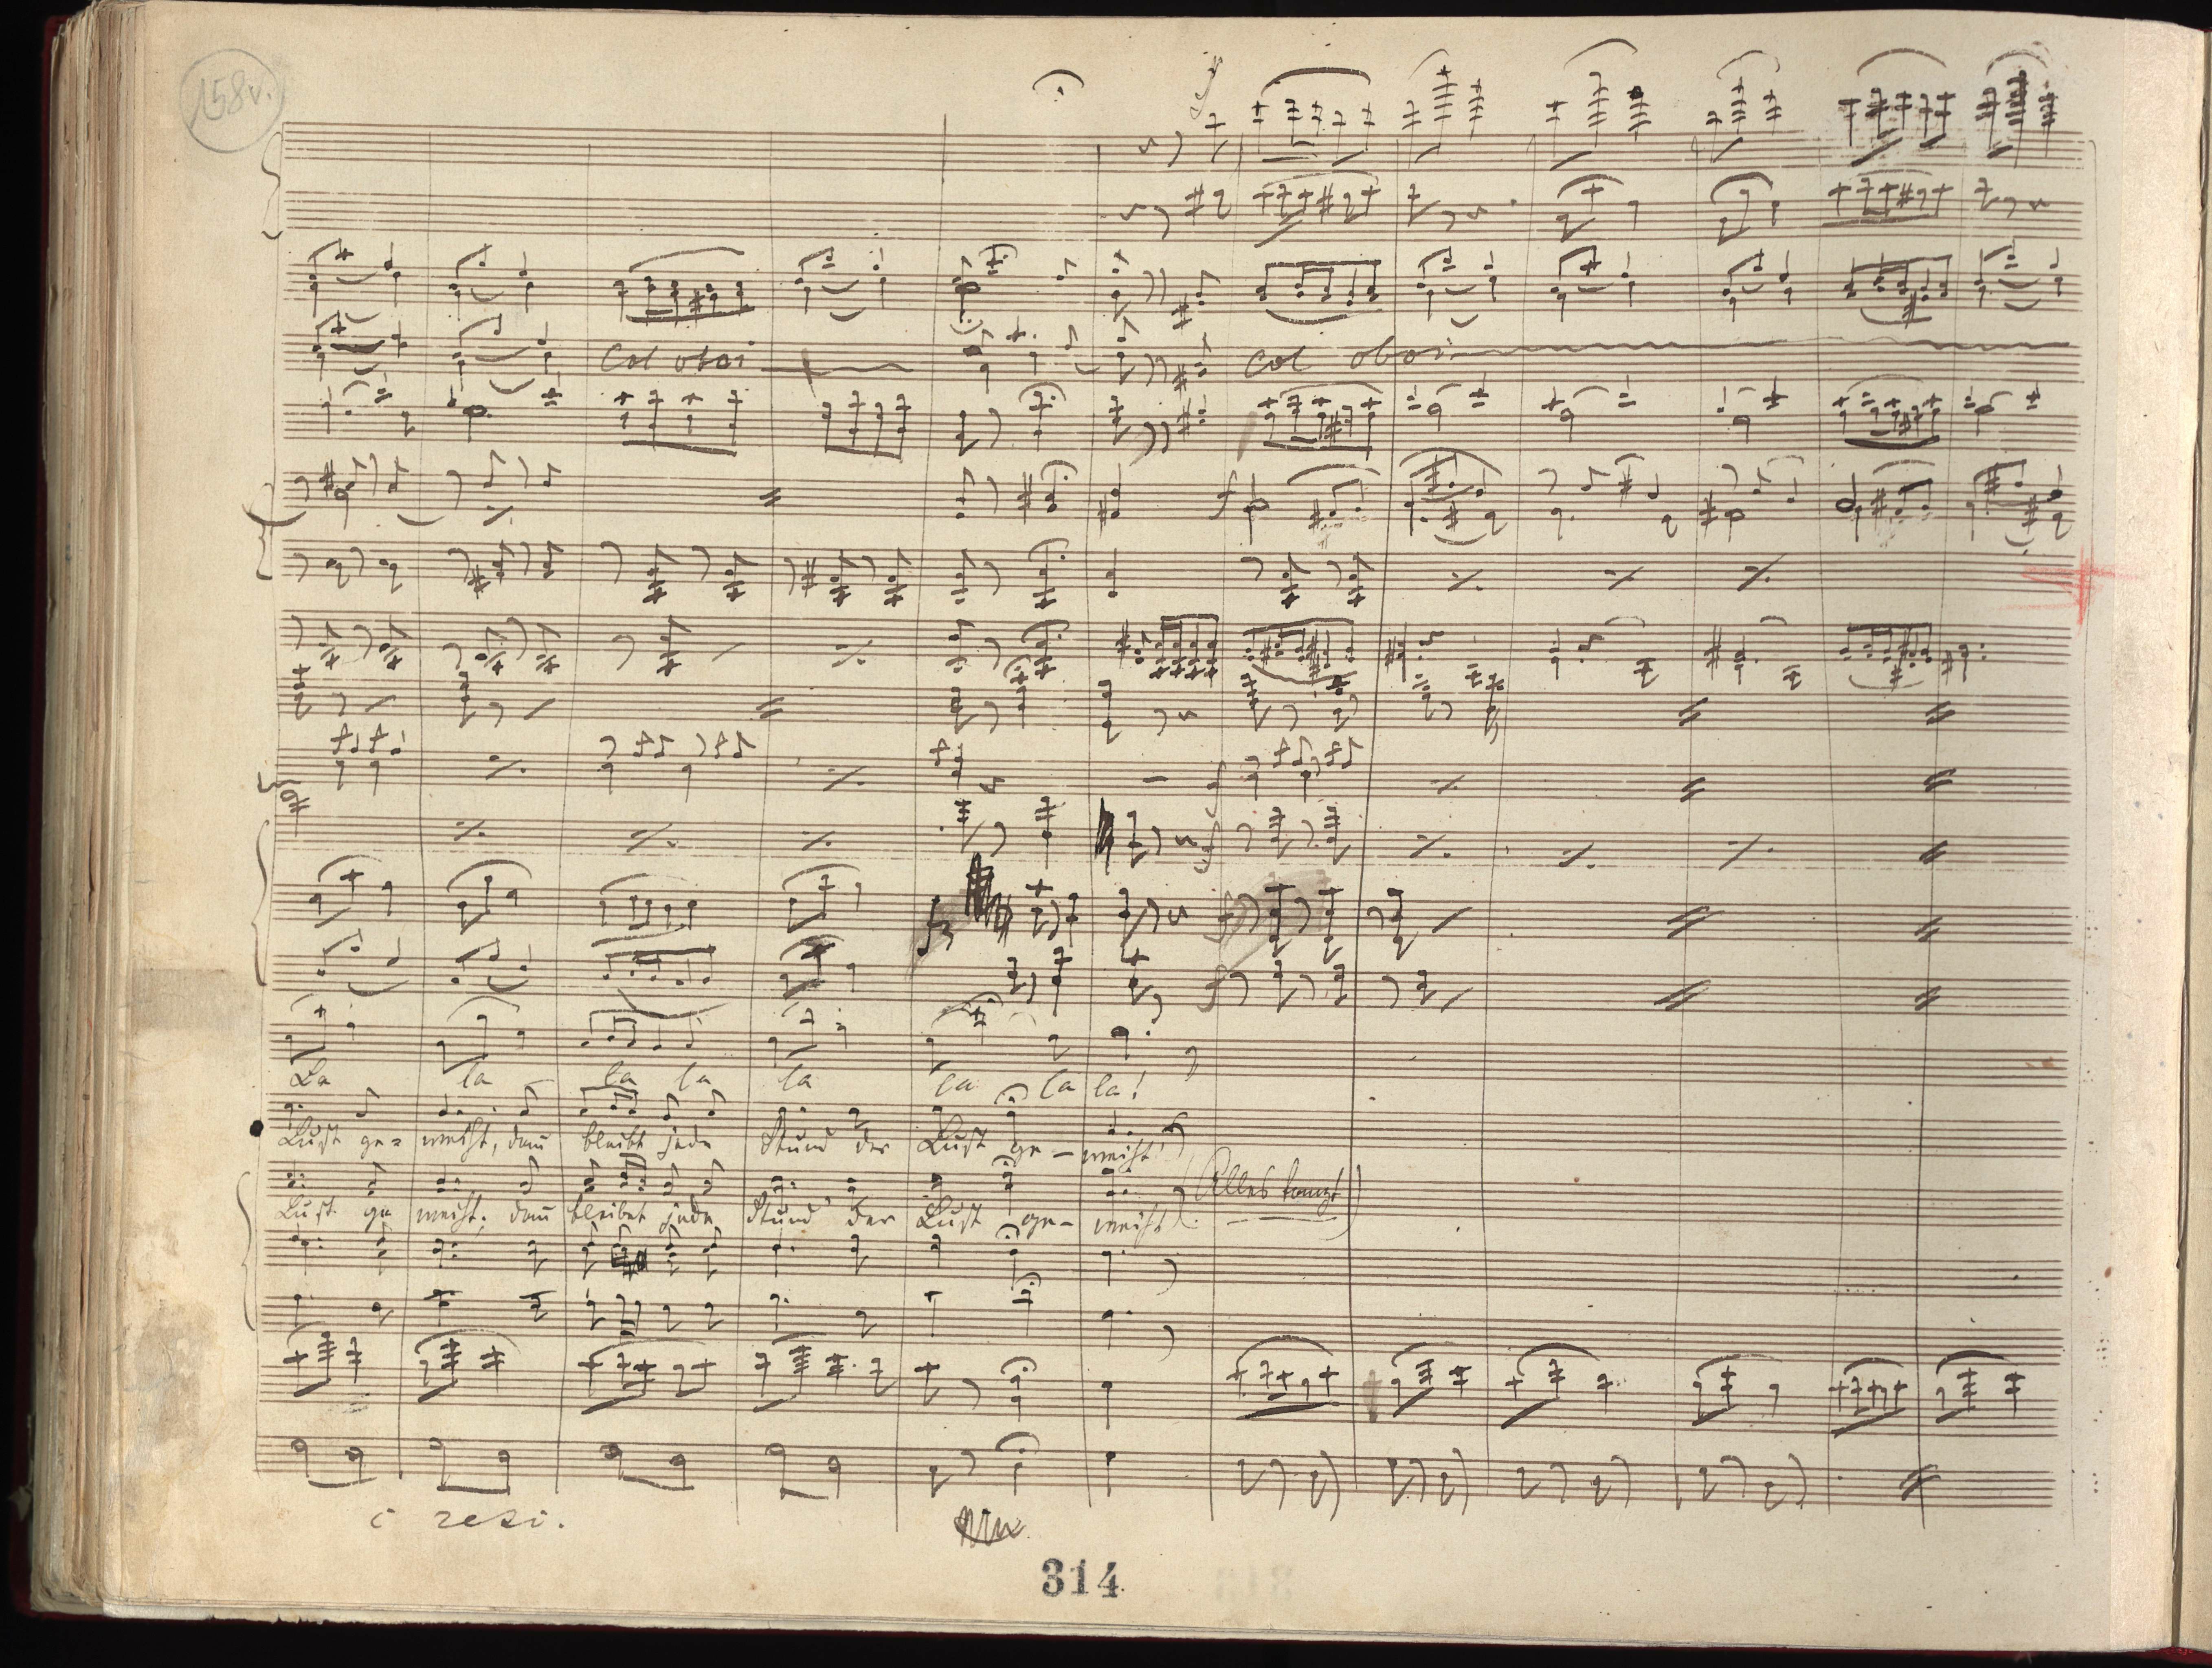 158v.
col oboi
col oboi
La la la la la la la la!
Lust ge= weiht, dann bleibt jede Stund der Lust ge – weiht
Lust ge weiht, dann bleibet jede Stund der Lust ge – weiht (Alles tanzt)
314